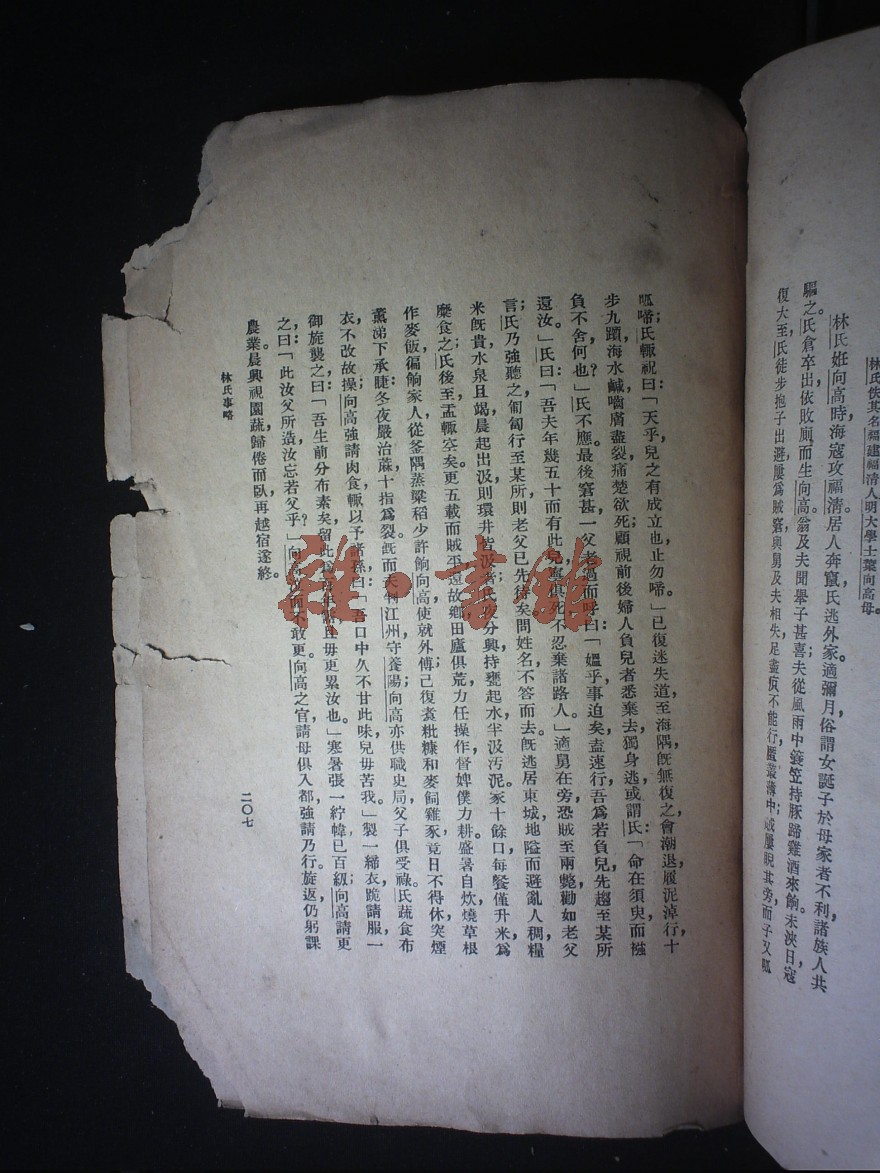 林氏佚其名福建福清人明大學士葉向高母。
林氏姙向高時，海寇攻福清。居人奔竄，氏逃外家，適彌月。俗謂女誕子於母家者不利，諸族人共
驅之。氏倉卒出，依敗廁而生向高。翁及夫聞舉子甚喜；夫從風雨中簑笠持豚蹄雞酒來餉。未浹日，寇
復大至，氏徒步抱子出避，屢爲賊窘，與舅及夫相失，足盡疻不能行，匿叢薄中；賊屢睨其旁，而子又呱
呱啼；氏輒祝曰：「天乎，兒之有成立也，止勿啼。」已復迷失道，至海隅，旣無復之，會潮退，履泥淖，行十
步九躓，海水鹹嚙膚盡裂，痛楚欲死；顧視前後婦人負兒者悉棄去，獨身逃，或謂氏：「命在須臾，而襁
負不舍何也？」氏不應。最後窘甚，一父老過而呼曰：「媼乎事迫矣，盍速行，吾爲若負兒先趨至某所
還汝。」氏曰：「吾夫年幾五十而有此兒，寧俱死，不忍棄諸路人。」適舅在旁，恐賊至兩斃，勸如老父
言；氏乃強聽之，匍匐行至某所，則老父已先待矣，問姓名不答而去。旣逃居東城，地隘而避亂人稠，糧
米旣貴，水泉且竭，晨起出汲，則環井皆汲者；氏夜分興，持甕起水，半汲汚泥。家十餘口，每餐僅升米爲
糜食之；氏後至，盂輒空矣。更五載而賊平還故鄉，田廬俱荒，力任操作，督婢僕力耕。盛暑自炊，燒草根
作麥飯，徧餉家人，從釜隅蒸粱稻少許餉向高，使就外傅；己復舂粃糠和麥飼雞豕，竟日不得休，突煙
薰涕下承睫；冬夜嚴治蔴，十指爲裂。旣而夫判江州，守養陽，向高亦供職史局，父子俱受祿。氏蔬食布
衣，不改故操；向高強請肉食，輒以予諸孫，曰：「吾口中久不甘此味，兒毋苦我。」製一締衣，跪請服，一
御旋襲之，曰：「吾生前分布素矣，留此爲百年需，且毋更累汝也。」寒暑張一紵幃，已百級；向高請更
之，曰：「此汝父所造，汝忘若父乎？」向高而不敢更。向高之官，請母俱入都，強請乃行。旋返，仍躬課
農業，晨興視園蔬，歸倦而臥，再越宿遂終。
林氏事略
二〇七
雜·書館